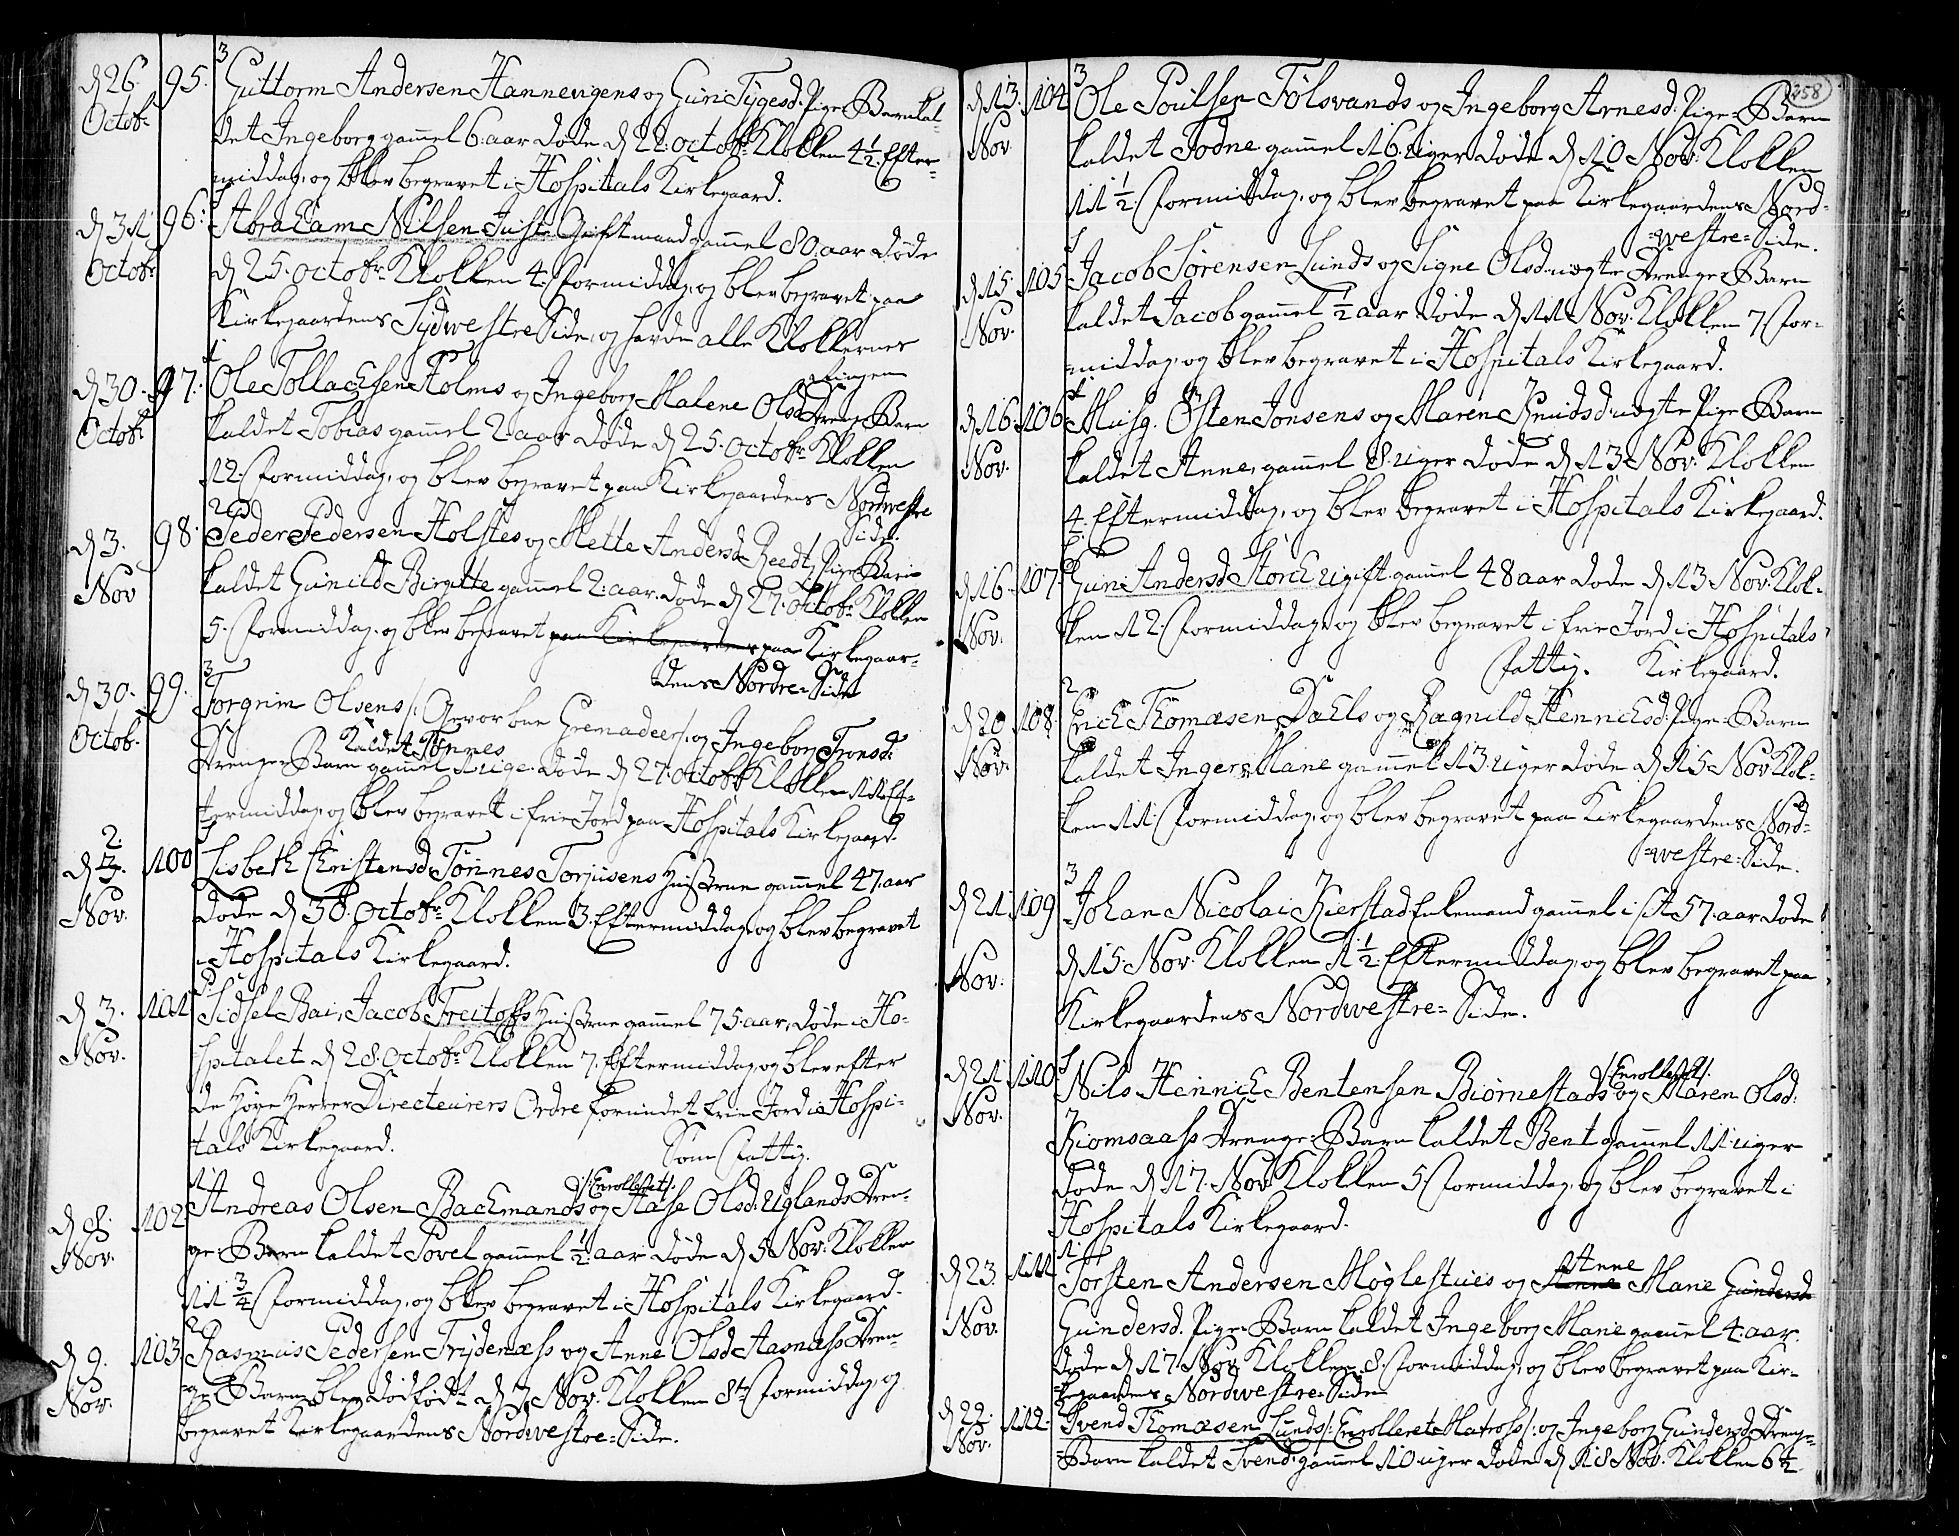 d 26. Octob: 95. 3 Guttorm Andersen Hannevigens og Guri Tygesd: Pige-Barn kal-
det Ingeborg gamel 6 aar døde d 22. octobr. Klokken 4 1/2. Efter-
middag, og blev begravet i Hospitals Kirkegaard.
d 31 Octobr 96. Abraham Nilsen Just Gift mand gamel 80 aar døde
d 25. octobr. Klokken 4. Formiddag, og blev begravet paa
Kirkegaardens Sydwestre Side, og havde alle Klokkernes
Ringen
d 30. Octobr 97. Ole Tollachsen Holms og Ingeborg Malene Olsd. Drenge-Barn
kaldet Tobias gamel 2 aar døde d 25. octobr. Klokken
12. Formiddag, og blev begravet paa Kirkegaardens Nordwestre
Side.
d 3. Nov 98. 2 Peder Pedersen Holstes og Mette Andersd. Reedt, Pige-Barn
kaldet Gunild Birgitte gamel 2. aar. døde d 27. octobr. Klokken
5. Formiddag, og blev begravet paa Kirkegaardens paa Kirkegaar-
dens Nordre-Side
d 30. Octob. 99. 3 Torgrim Olsens /: Gevorbne Grenadeer :/ og Ingeborg Tronsd:
Kaldet Tønnes
Drenge-Barn gamel 1 uge. døde d 27. octobr Klokken 11 Ef-
termiddag, og blev begravet i frie Jord paa Hospitals Kirkegaard.
d 2. Nov. 100 Lisbeth Christensd. Tønnes Torjusens Hustrue gamel 47. aar
døde d 30. octobr. Klokken 3. Eftermiddag, og blev begravet
i Hospitals Kirkegaard.
d 3. Nov. 101 Sidsel Bai, Jacob Freitoffs Hustrue gamel 75. aar, døde i Ho-
spitalet d 28. octobr. Klokken 7. Eftermiddag, og blev efter
de Høye Herrer Directeurers Ordre forundet frie Jord i Hospi-
tals Kirkegaard. Fattig.
/: Enrolleret :/
d 8. Nov. 102 Andreas Olsen Bachmands og Aase Olsd. Uglands Dren-
ge-Barn kaldet Povel gamel 1/2 aar døde d 5 Nov. Klokken
11 3/4 Formiddag, og blev begravet i Hospitals Kirkegaard.
d 9. Nov. 103 2 Rasmus Pedersen Frydenæss og Anne Olsd. Aasnæss Dren-
ge Barn blev død født d 7 Nov. Klokken 8te Formiddag, og
begravet Kirkegaardens Nordwestre-Side.
358
d 13. Nov 104 3 Ole Poulsen Følsvands og Ingeborg Arnesd. Pige-Barn
kaldet Todne gamel 16. uger døde d 10 Nov. Klokken
11 1/2. Formiddag, og blev begravet paa Kirkegaardens Nord-
westre-Side.
d 15. Nov. 105 Jacob Sørensen Lunds og Signe Olsd. uægte Drenge-Barn
kaldet Jacob gamel 1/2 aar døde d 11 Nov. Klokken 7 For-
middag, og blev begravet i Hospitals Kirkegaard.
d 16 Nov. 106 Musq. Østen Jonsens og Maren Knudsd. uægte Pige Barn
kaldet Anne, gamel 8. uger døde d 13 Nov. Klokken
4. Eftermiddag, og blev begravet i Hospitals Kirkegaard.
d 16. Nov. 107 Guri Andersd. Storch ugift gamel 48 aar døde d 13 Nov. Klok-
ken 12. Formiddag, og blev begravet i frie Jord i Hospitals
Fattig. Kirkegaard.
d 20 Nov. 108 2 Erich Thomæsen Dahls og Ragnild Hennichsd. Pige-Barn
kaldet Inger Marie gamel 13. uger døde d 15 Nov. Klok-
ken 11. Formiddag, og blev begravet paa Kirkegaardens Nord-
westre-Side.
d 21. Nov. 109 3 Johan Nicolai Kierstad Enkemand gamel i sit 57. aar døde
d 15. Nov. Klokken 1 1/2. Eftermiddag, og blev begravet paa
Kirkegaardens Nordwestre-Side.
/: Enrolleret :/
d 21 Nov. 110 Nils Hennich Bentensen Biørnestads og Maren Olsd.
Kiomsaass Drenge-Barn kaldet Bent gamel 11. uger
døde d 17. Nov. Klokken 5 Formiddag, og blev begravet i
Hospitals Kirkegaard.
Anne
d 23. Nov. 111 Torsten Andersen Møglestues og Anne Marie Gundersd
Gundersd. Pige-Barn kaldet Ingeborg Marie gamel 4. aar.
døde d 17. Nov. Klokken 8. Formiddag, og blev begravet paa Kir-
kegaardens Nordwestre-Side
d 22. Nov. 112. 2 Svend Thomæsen Lunds /: Enrolleret Matross :/ og Ingeborg Gundersd. Drenge-
Barn kaldet Svend, gamel 10 uger døde d 18 Nov. Klokken 6 1/2.